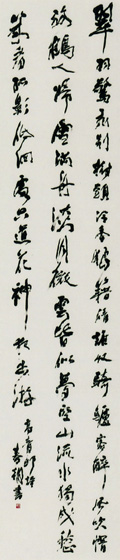 翠羽驚飛別樹頭冷香狼籍倩誰收騎驢客醉風吹帽
放鶴人歸雪滿舟淡月微雲皆似夢空山流水獨成愁
幾看孤影低徊處只道花神夜出游
高青邱詩